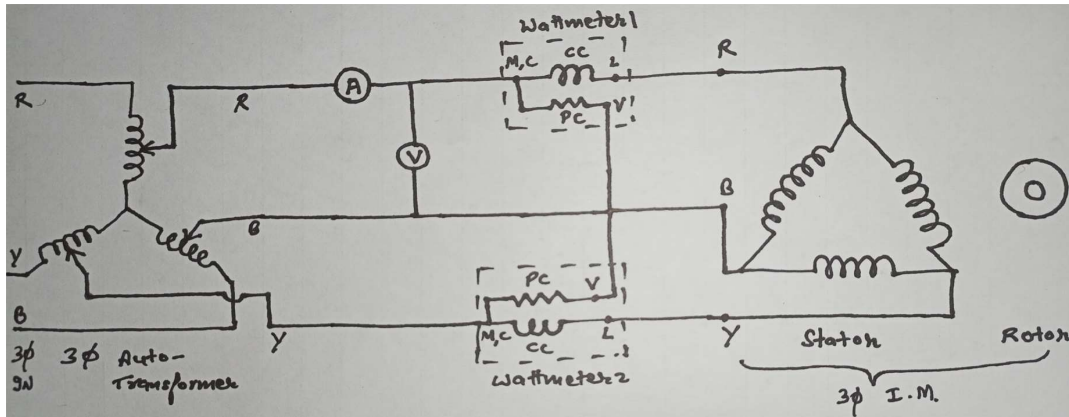 Wattmeter1
M,C CC L
R
PC V
R R A
V
B
B
Y
B
PC V
M,C CC L
Wattmeter2
Y Y
3φ IN
3φ Auto-
Transformer
Stator Rotor
3φ I.M.